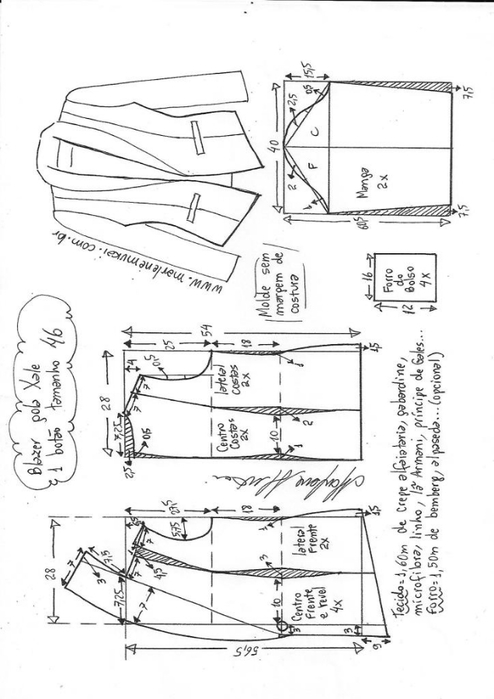 Blazer gola Xale
1 botão tamanho 46
www.marlenemukai.com.br
Molde sem
margem de
costura
40
15,5
2,5
0,5
C
F
2
1
Manga
2x
60,5
7,5
7,5
16
Forro
do
Bolso
4x
12
54
25
18
28
4
0,5
7
7
7,25
0,5
2,5
lateral
Costas
2x
Centro
Costas
2x
10
1
2
1
1,5
28
7,5
3
7
7,25
7
4,5
7
5,75
18
3
3
lateral
Frente
2x
Centro
Frente
e revel
4x
10
3
3
1,5
6
56,5
Tecido=1,60m de crepe alfaiataria, gabardine,
microfibra, linho, lã Armani, príncipe de Gales...
Forro=1,50m de bemberg, alpaseda...(opcional)